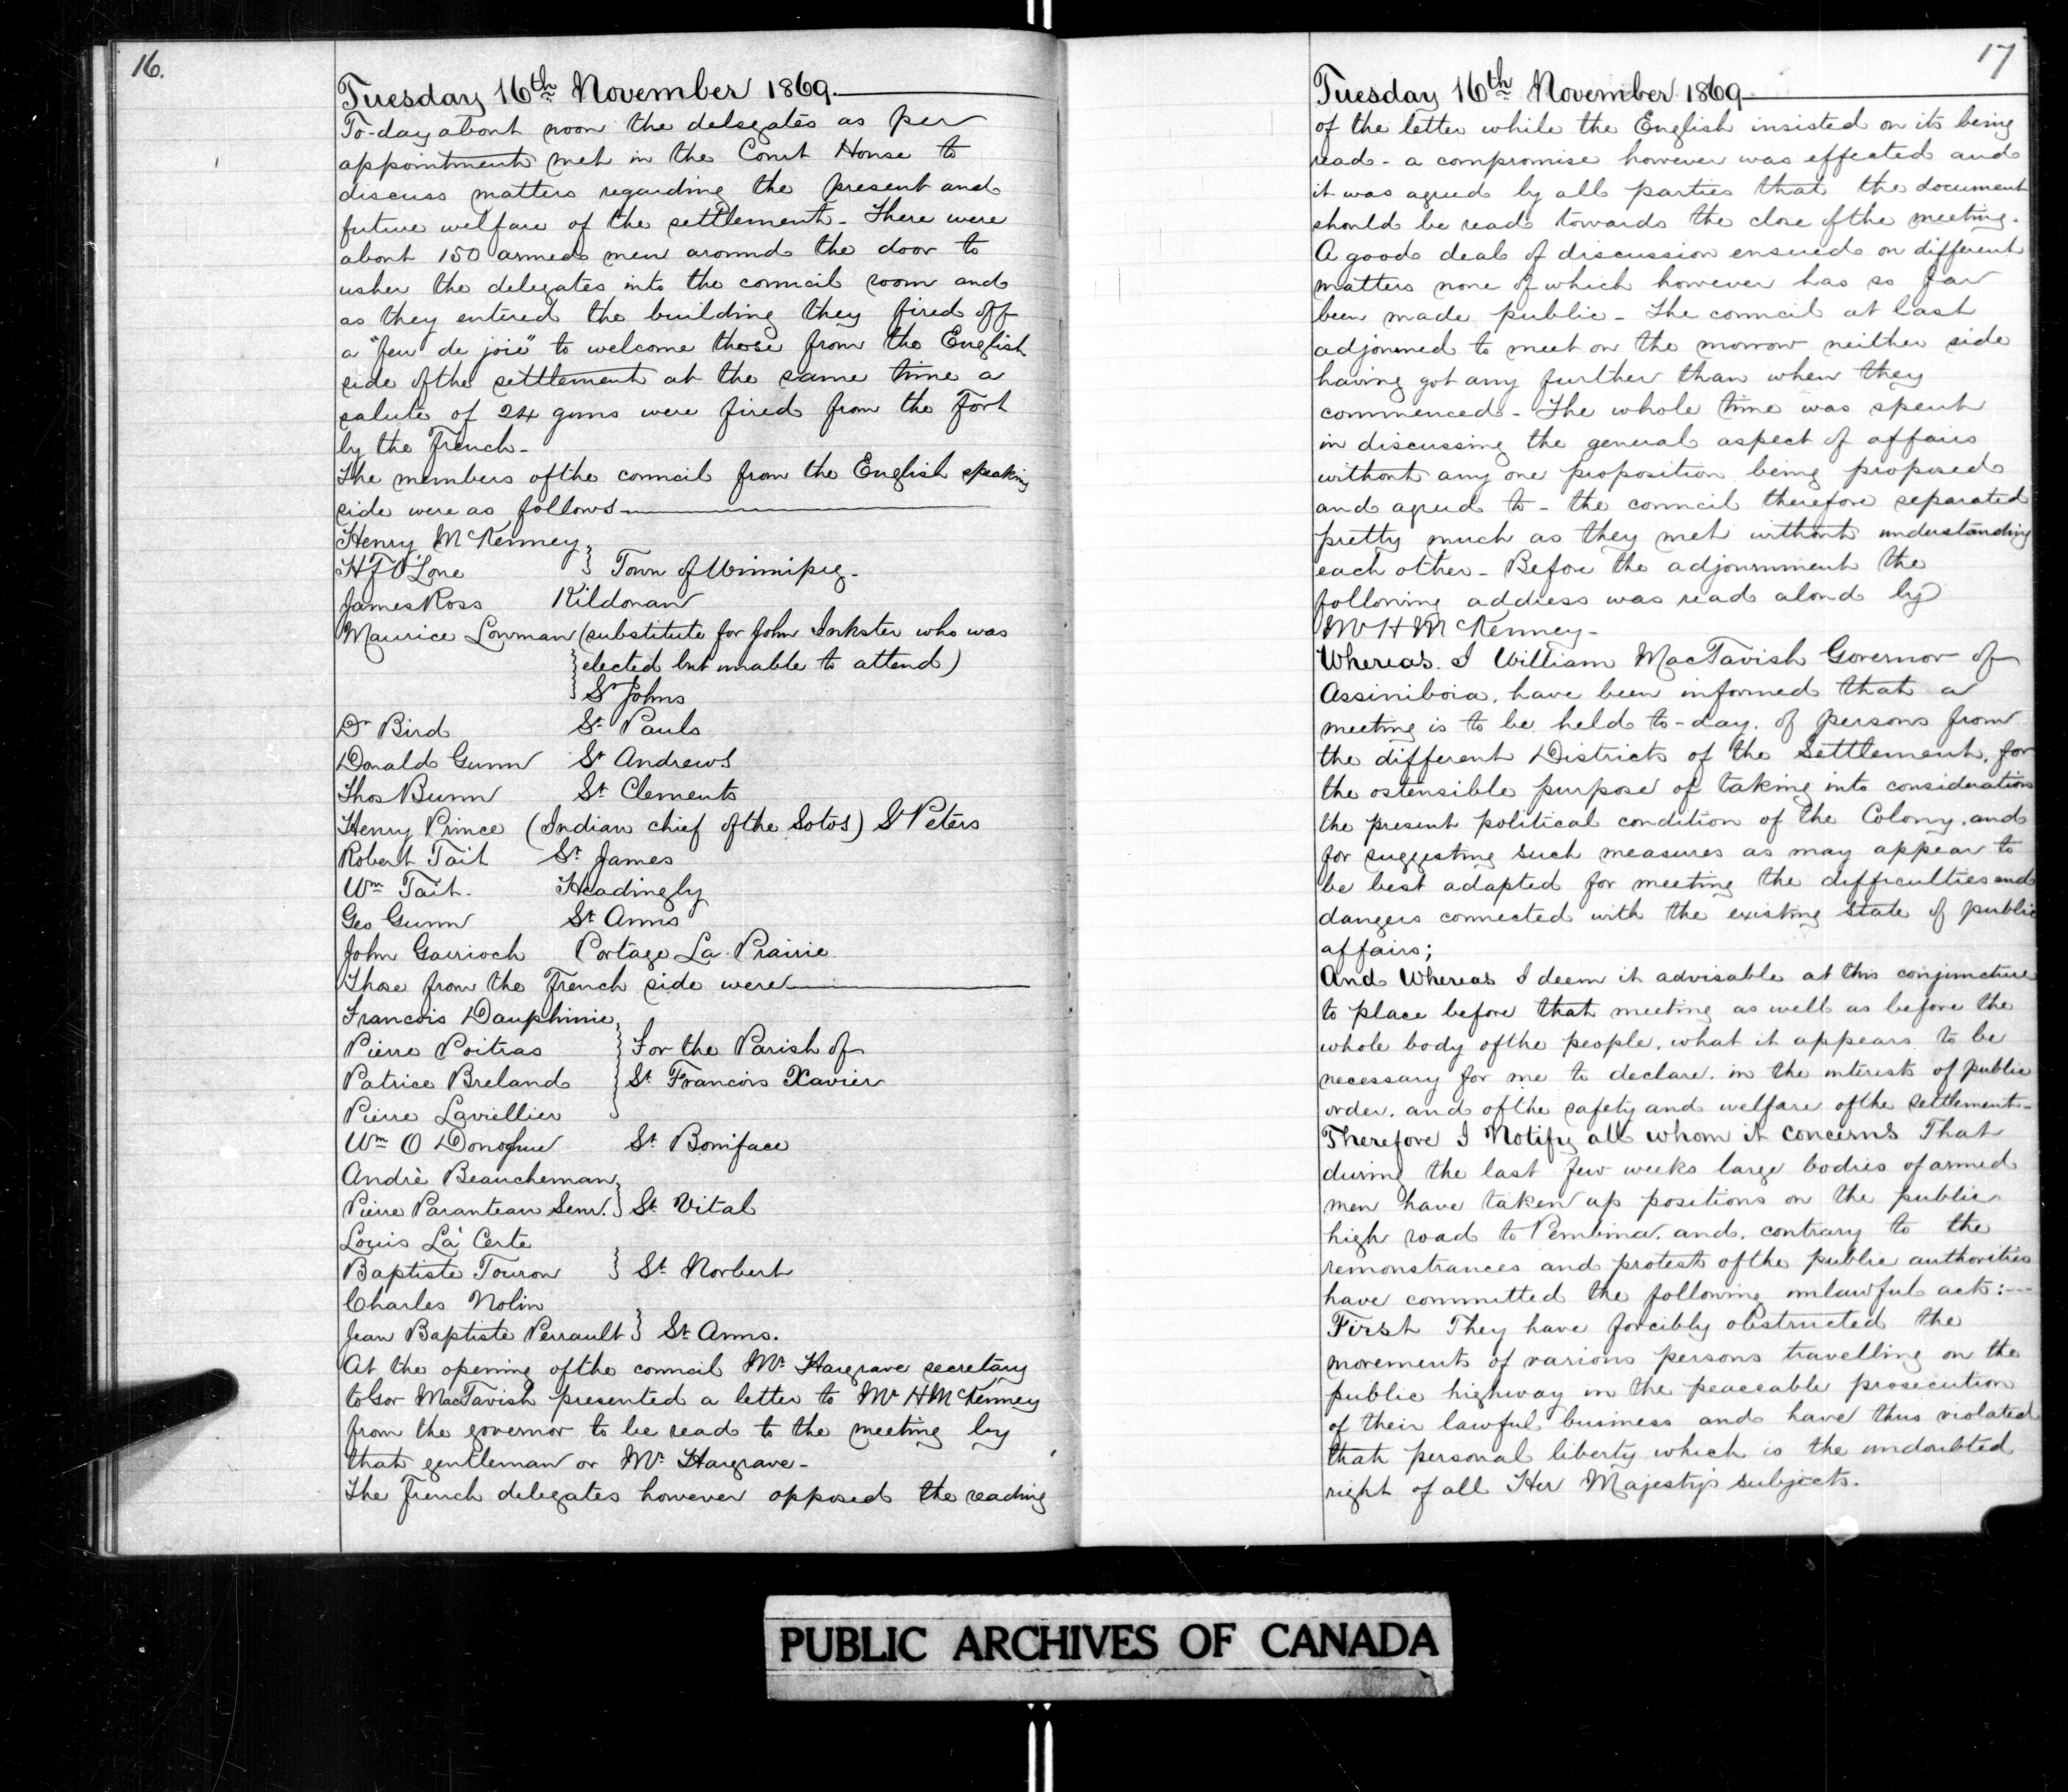 16.
Tuesday 16th November 1869.
To-day about noon the delegates as per
appointment met in the Court House to
discuss matters regarding the present and
future welfare of the settlement - There were
about 150 armed men around the door to
usher the delegates into the council room and
as they entered the building they fired off
a "feu de joie" to welcome those from the English
side of the settlement at the same time a
salute of 24 guns were fired from the Fort
by the French -
The members of the council from the English speaking
side were as follows
Henry McKenney
H F O'Lone } Town of Winnipeg -
James Ross Kildonan
Maurice Lowman (substitute for John Inkster who was
elected but unable to attend)
St Johns
Dr Bird St Pauls
Donald Gunn St Andrews
Thos Bunn St Clements
Henry Prince (Indian chief of the Sotos) St Peters
Robert Tait St James
Wm Tait. Headingly
Geo Gunn St Anns
John Garrioch Portage La Prairie
Those from the French side were
Francois Dauphinie
Pierre Poitras } For the Parish of
Patrice Breland } St Francois Xavier
Pierre Laviellier
Wm O Donoghue St Boniface
Andrè Beaucheman
Pierre Paranteau Senr. } St Vital
Louis La Certe
Baptiste Touron } St Norbert
Charles Nolin
Jean Baptiste Perrault } St Anns.
At the opening of the council Mr Hargrave secretary
to Gov MacTavish presented a letter to Mr H McKenney
from the governor to be read to the meeting by
that gentleman or Mr Hargrave -
The French delegates however opposed the reading
17
Tuesday 16th November 1869
of the letter while the English insisted on its being
read - a compromise however was effected and
it was agreed by all parties that the document
should be read towards the close of the meeting.
A good deal of discussion ensued on different
matters none of which however has so far
been made public - The council at last
adjourned to meet on the morrow neither side
having got any further than when they
commenced - The whole time was spent
in discussing the general aspect of affairs
without any one proposition being proposed
and agreed to - the council therefore separated
pretty much as they met without understanding
each other - Before the adjournment the
following address was read aloud by
Mr H McKenney -
Whereas I William MacTavish Governor of
Assiniboia, have been informed that a
meeting is to be held to-day, of persons from
the different Districts of the Settlement, for
the ostensible purpose of taking into consideration
the present political condition of the Colony, and
for suggesting such measures as may appear to
be best adapted for meeting the difficulties and
dangers connected with the existing state of public
affairs;
And Whereas I deem it advisable at this conjuncture
to place before that meeting as well as before the
whole body of the people, what it appears to be
necessary for me to declare, in the interests of public
order, and of the safety and welfare of the settlement -
Therefore I Notify all whom it concerns That
during the last few weeks large bodies of armed
men have taken up positions on the public
high road to Pembina, and, contrary to the
remonstrances and protests of the public authorities
have committed the following unlawful acts: ---
First They have forcibly obstructed the
movements of various persons travelling on the
public highway in the peaceable prosecution
of their lawful business and have thus violated
that personal liberty which is the undoubted
right of all Her Majesty's subjects.
PUBLIC ARCHIVES OF CANADA